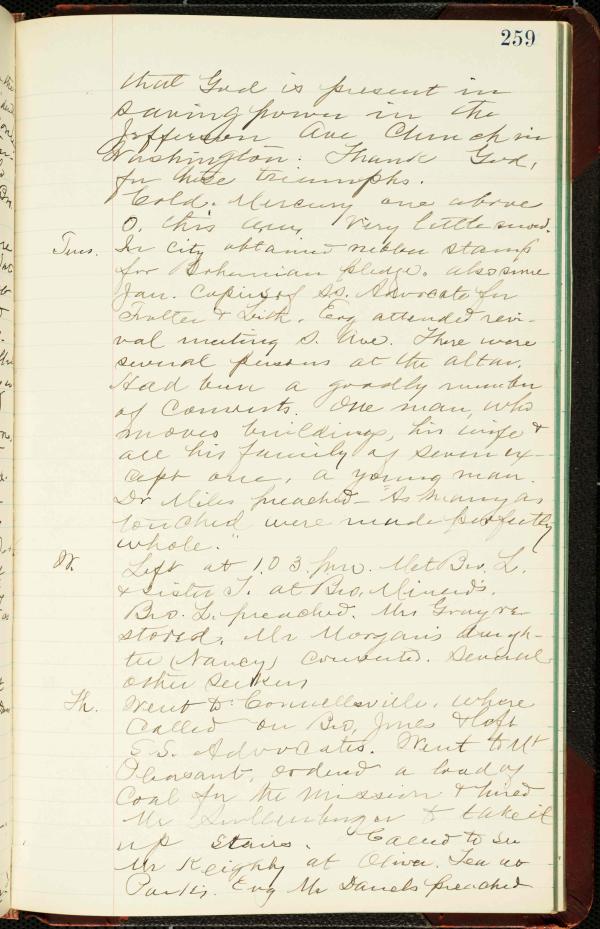 259
that God is present in
saving power in the
Jefferson Ave Church in
Washington. Thank God,
for these triumphs.
Cold. Mercury one above
0. this a.m. Very little snow.
Tues. In city obtained rubber stamp
for Bohemian pledge. also some
Jan. Copies of S.S. Advocate for
& Lith. Evg attended revi-
val meeting S. Ave. There were
several persons at the altar.
Had been a goodly number
of Converts. One man, who
moves buildings, his wife &
all his family of seven ex-
cept one, a young man.
Dr Miles preached - "As many as
touched were made perfectly
whole."
W. Left at 1.03 pm. Met Bro. L.
& sister T. at Bro. Minerd's.
Bro. L. preached. Mrs Gray re-
stored. Mr Morgan's daugh-
ter (Nancy) converted. Several
other seekers
Th. Went to Connellsville, where
called on Bro, Jones & left
S.S. Advocates. Went to Mt
Pleasant, ordered a load of
Coal for the Mission & hired
Mr to take it
up stairs. Called to see
Mr Keighly at Oliver. Tea at
Evg Mr Daniels preached